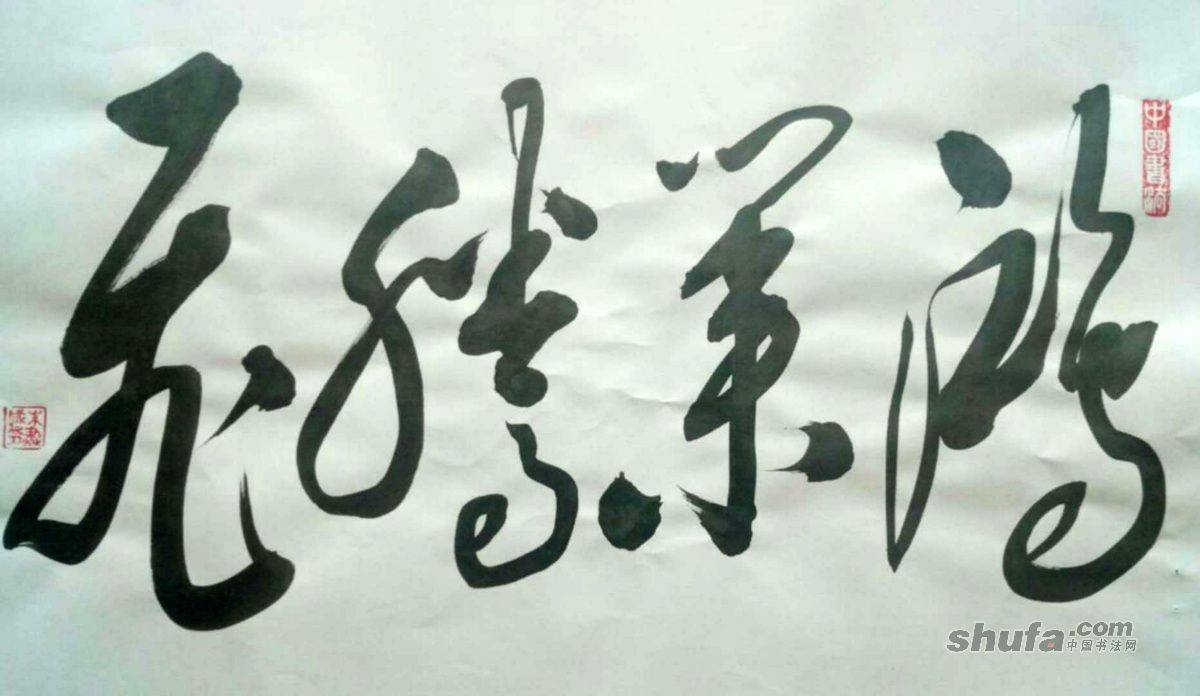 鴻業騰飛
中國書
shufa.com
中国书法网